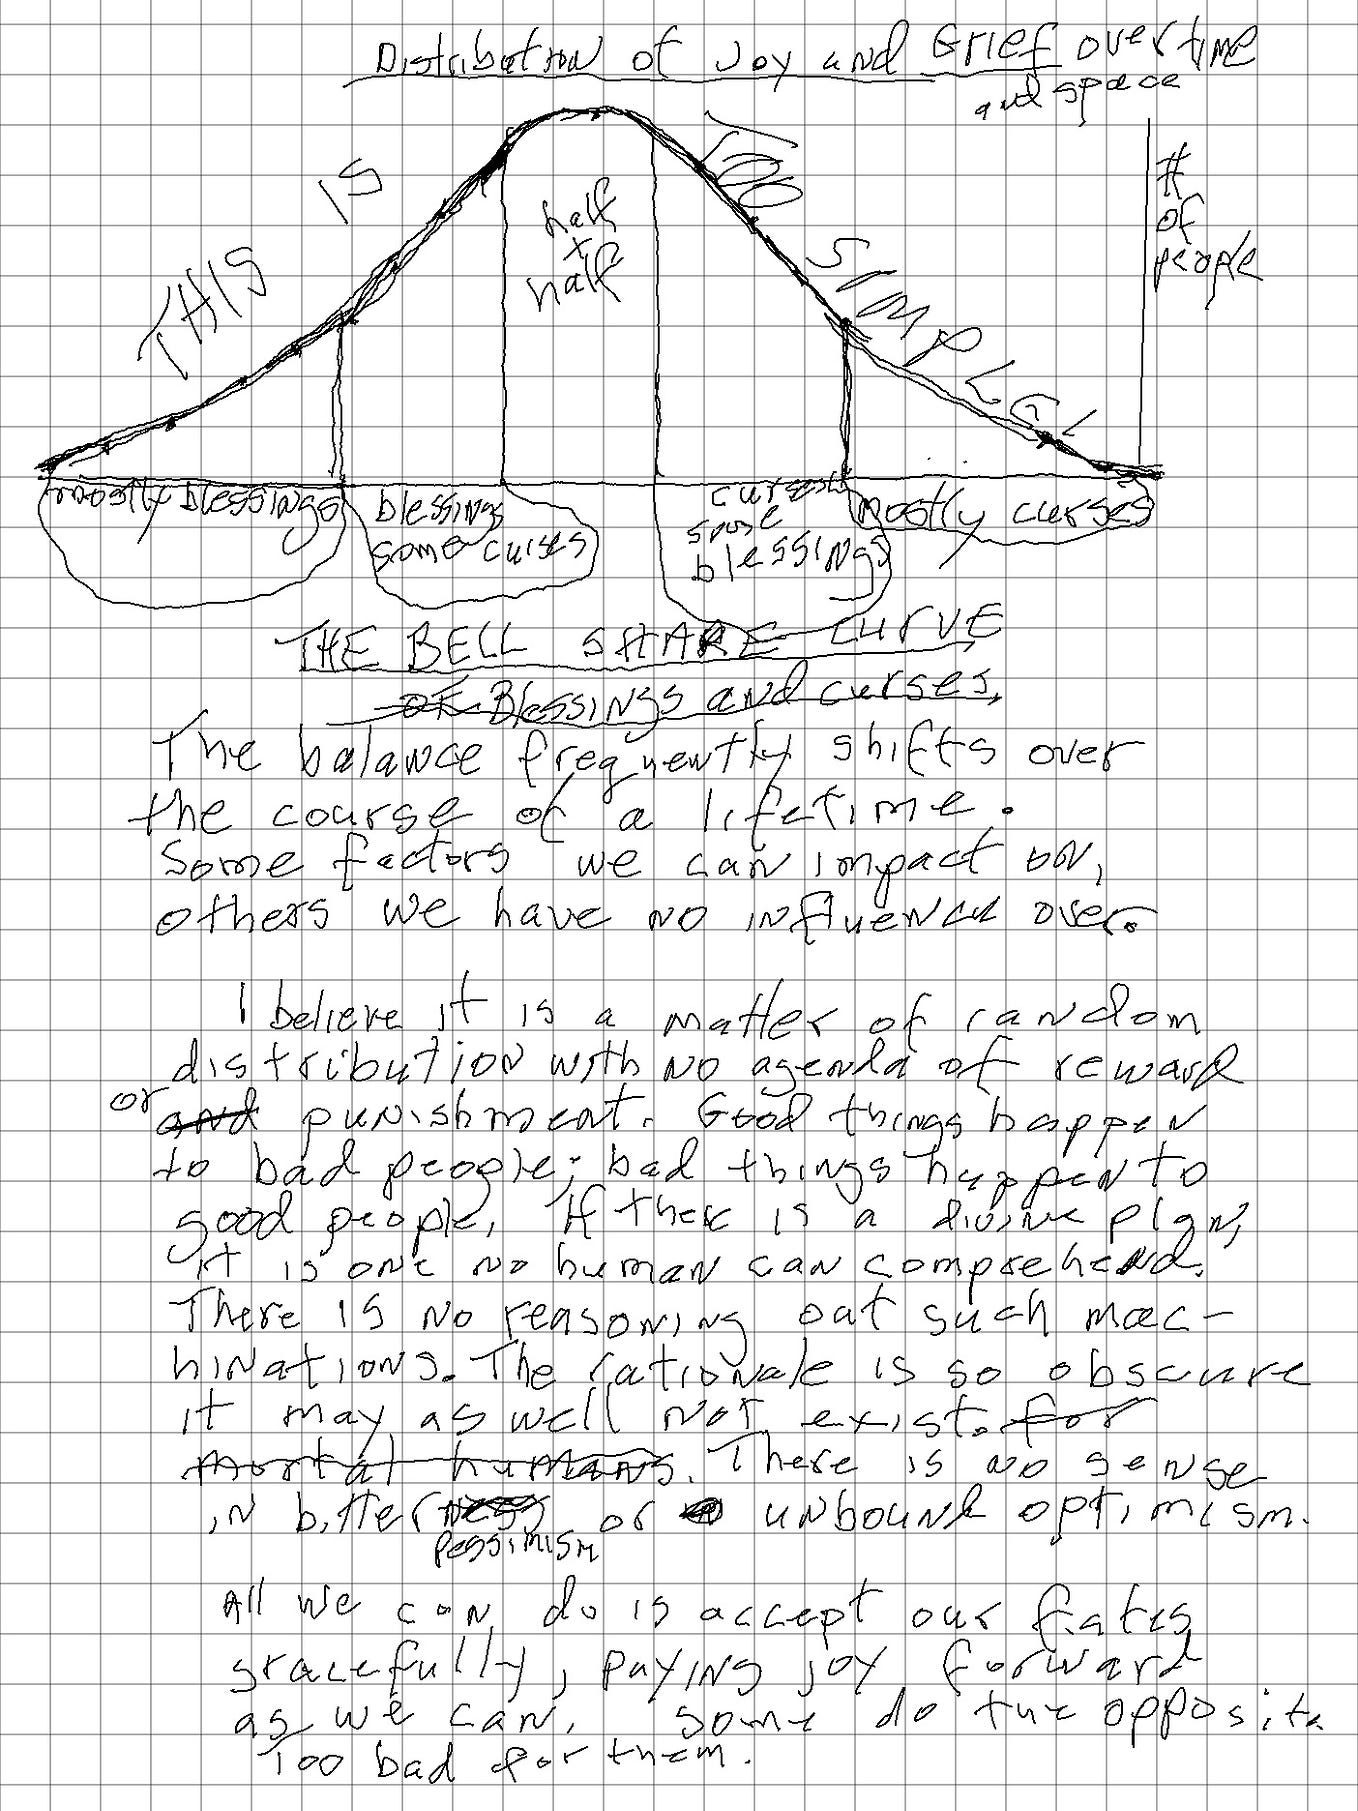 Distribution of Joy and Grief over time
and space
THIS IS TOO SIMPLE!
#
of
people
half
+
half
mostly blessings
blessings
some curses
curses
some
blessings
mostly curses
THE BELL SHAPE CURVE
OF Blessings and curses.
The balance frequently shifts over
the course of a lifetime.
Some factors we can impact on,
others we have no influence over.
I believe it is a matter of random
distribution with no agenda of reward
or and punishment. Good things happen
to bad people; bad things happen to
good people. If there is a divine plan,
it is one no human can comprehend.
There is no reasoning out such mac-
hinations. The rationale is so obscure
it may as well not exist. for
mortal humans. There is no sense
in bitterness or unbound optimism.
pessimism
All we can do is accept our fates
gracefully, paying joy forward
as we can. Some do the opposite
Too bad for them.